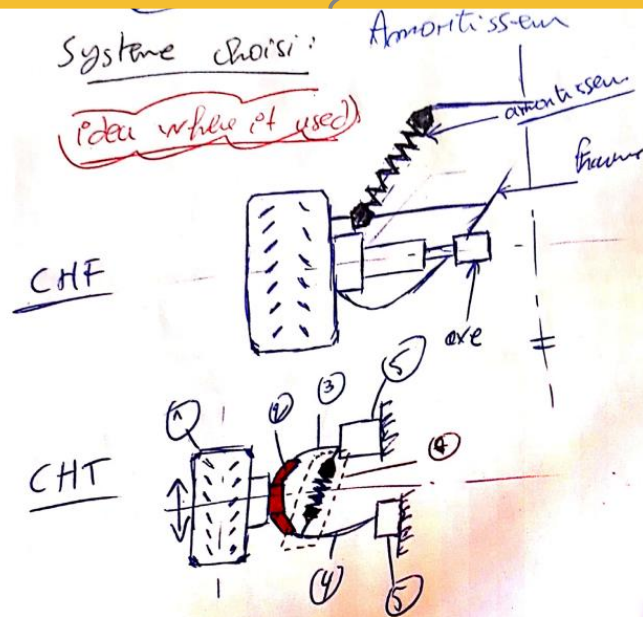 Système choisi :
Amoritisseur
idea where it used
amortisseur
CHF
axe
CHT
1
2
3
5
4
4
5